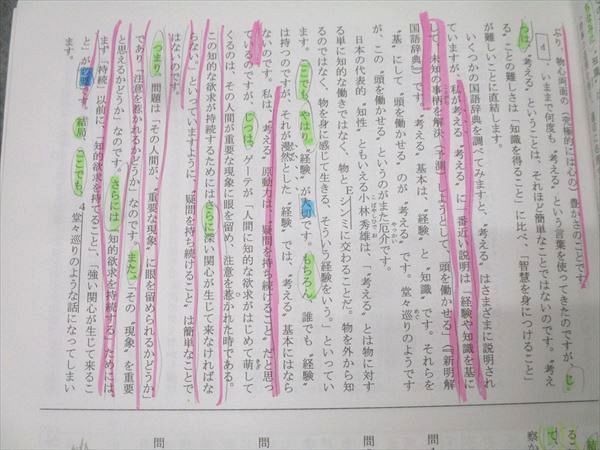 ぶり、物心両面の（究極的には心の）豊かさのことです。
4　いままで何度も〝考える〟という言葉を使ってきたのですが、じ
つは〝考える〟ということは、それほど簡単なことではないのです。〝考え
る〟ことの難しさは「知識を得ること」に比べ、「智慧を身につけること」
が難しいことに直結します。
いくつかの国語辞典を調べてみますと、〝考える〟はさまざまに説明され
ていますが、私が考える〝考える〟に一番近い説明は「経験や知識を基に
して、未知の事柄を解決（予測）しようとして、頭を働かせる」（『新明解
国語辞典』）です。〝考える〟基本は、〝経験〟と〝知識〟です。それらを
〝基〟にして〝頭を働かせる〟のが〝考える〟です。堂々巡りのようです
が、この〝頭を働かせる〟というのがまた厄介です。
やっかい
日本の代表的〝知性〟ともいえる小林秀雄は、「〝考える〟とは物に対す
こばやしひでお
る単に知的な働きではなく、物とEシンミに交わることだ。物を外から知
るのではなく、物を身に感じて生きる、そういう経験をいう。」といってい
ます。ここでも、やはり〝経験〟が大切です。もちろん、誰でも〝経験〟
は持つのですが、それが漫然とした〝経験〟では、〝考える〟基本にはなら
ないのです。私は、〝考える〟原動力は、〝疑問を持ち続けること〟だと思っ
ているのですが、じつは、ゲーテが「人間に知的な欲求がはじめて萌して
くるのは、その人間が重要な現象に眼を留め、注意を惹かれた時である。
この知的な欲求が持続するためにはさらに深い関心が生じて来なければな
らない」といっていますように、〝疑問を持ち続けること〟は簡単なことで
はないのです。
つまり、問題は「その人間が、〝重要な現象〟に眼を留められるかどうか」
であり、「注意を惹かれるかどうか」なのです。また、「その〝現象〟を重要
と思えるかどうか」なのです。さらには、「知的欲求を持続する」ためには、
まず「持続」以前に、「知的欲求を持てること」、「強い関心が生じて来るこ
と」が
す。結局、ここでも、4堂々巡りのような話になってしまい
ます。
問
問
問
問